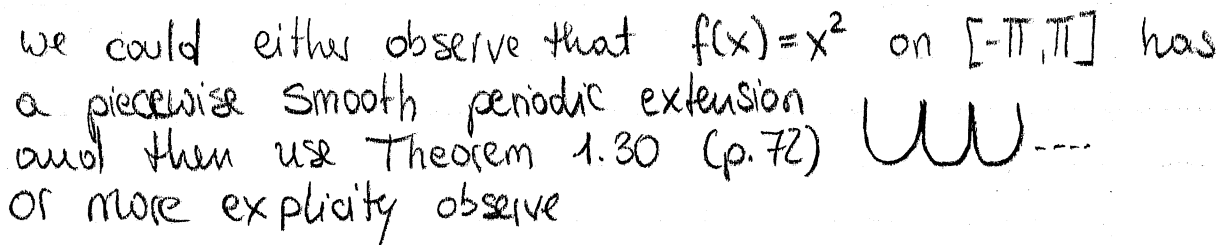 we could either observe that f(x)=x² on [-π,π] has
a piecewise smooth periodic extension
and then use Theorem 1.30 (p.72)
or more explicity observe